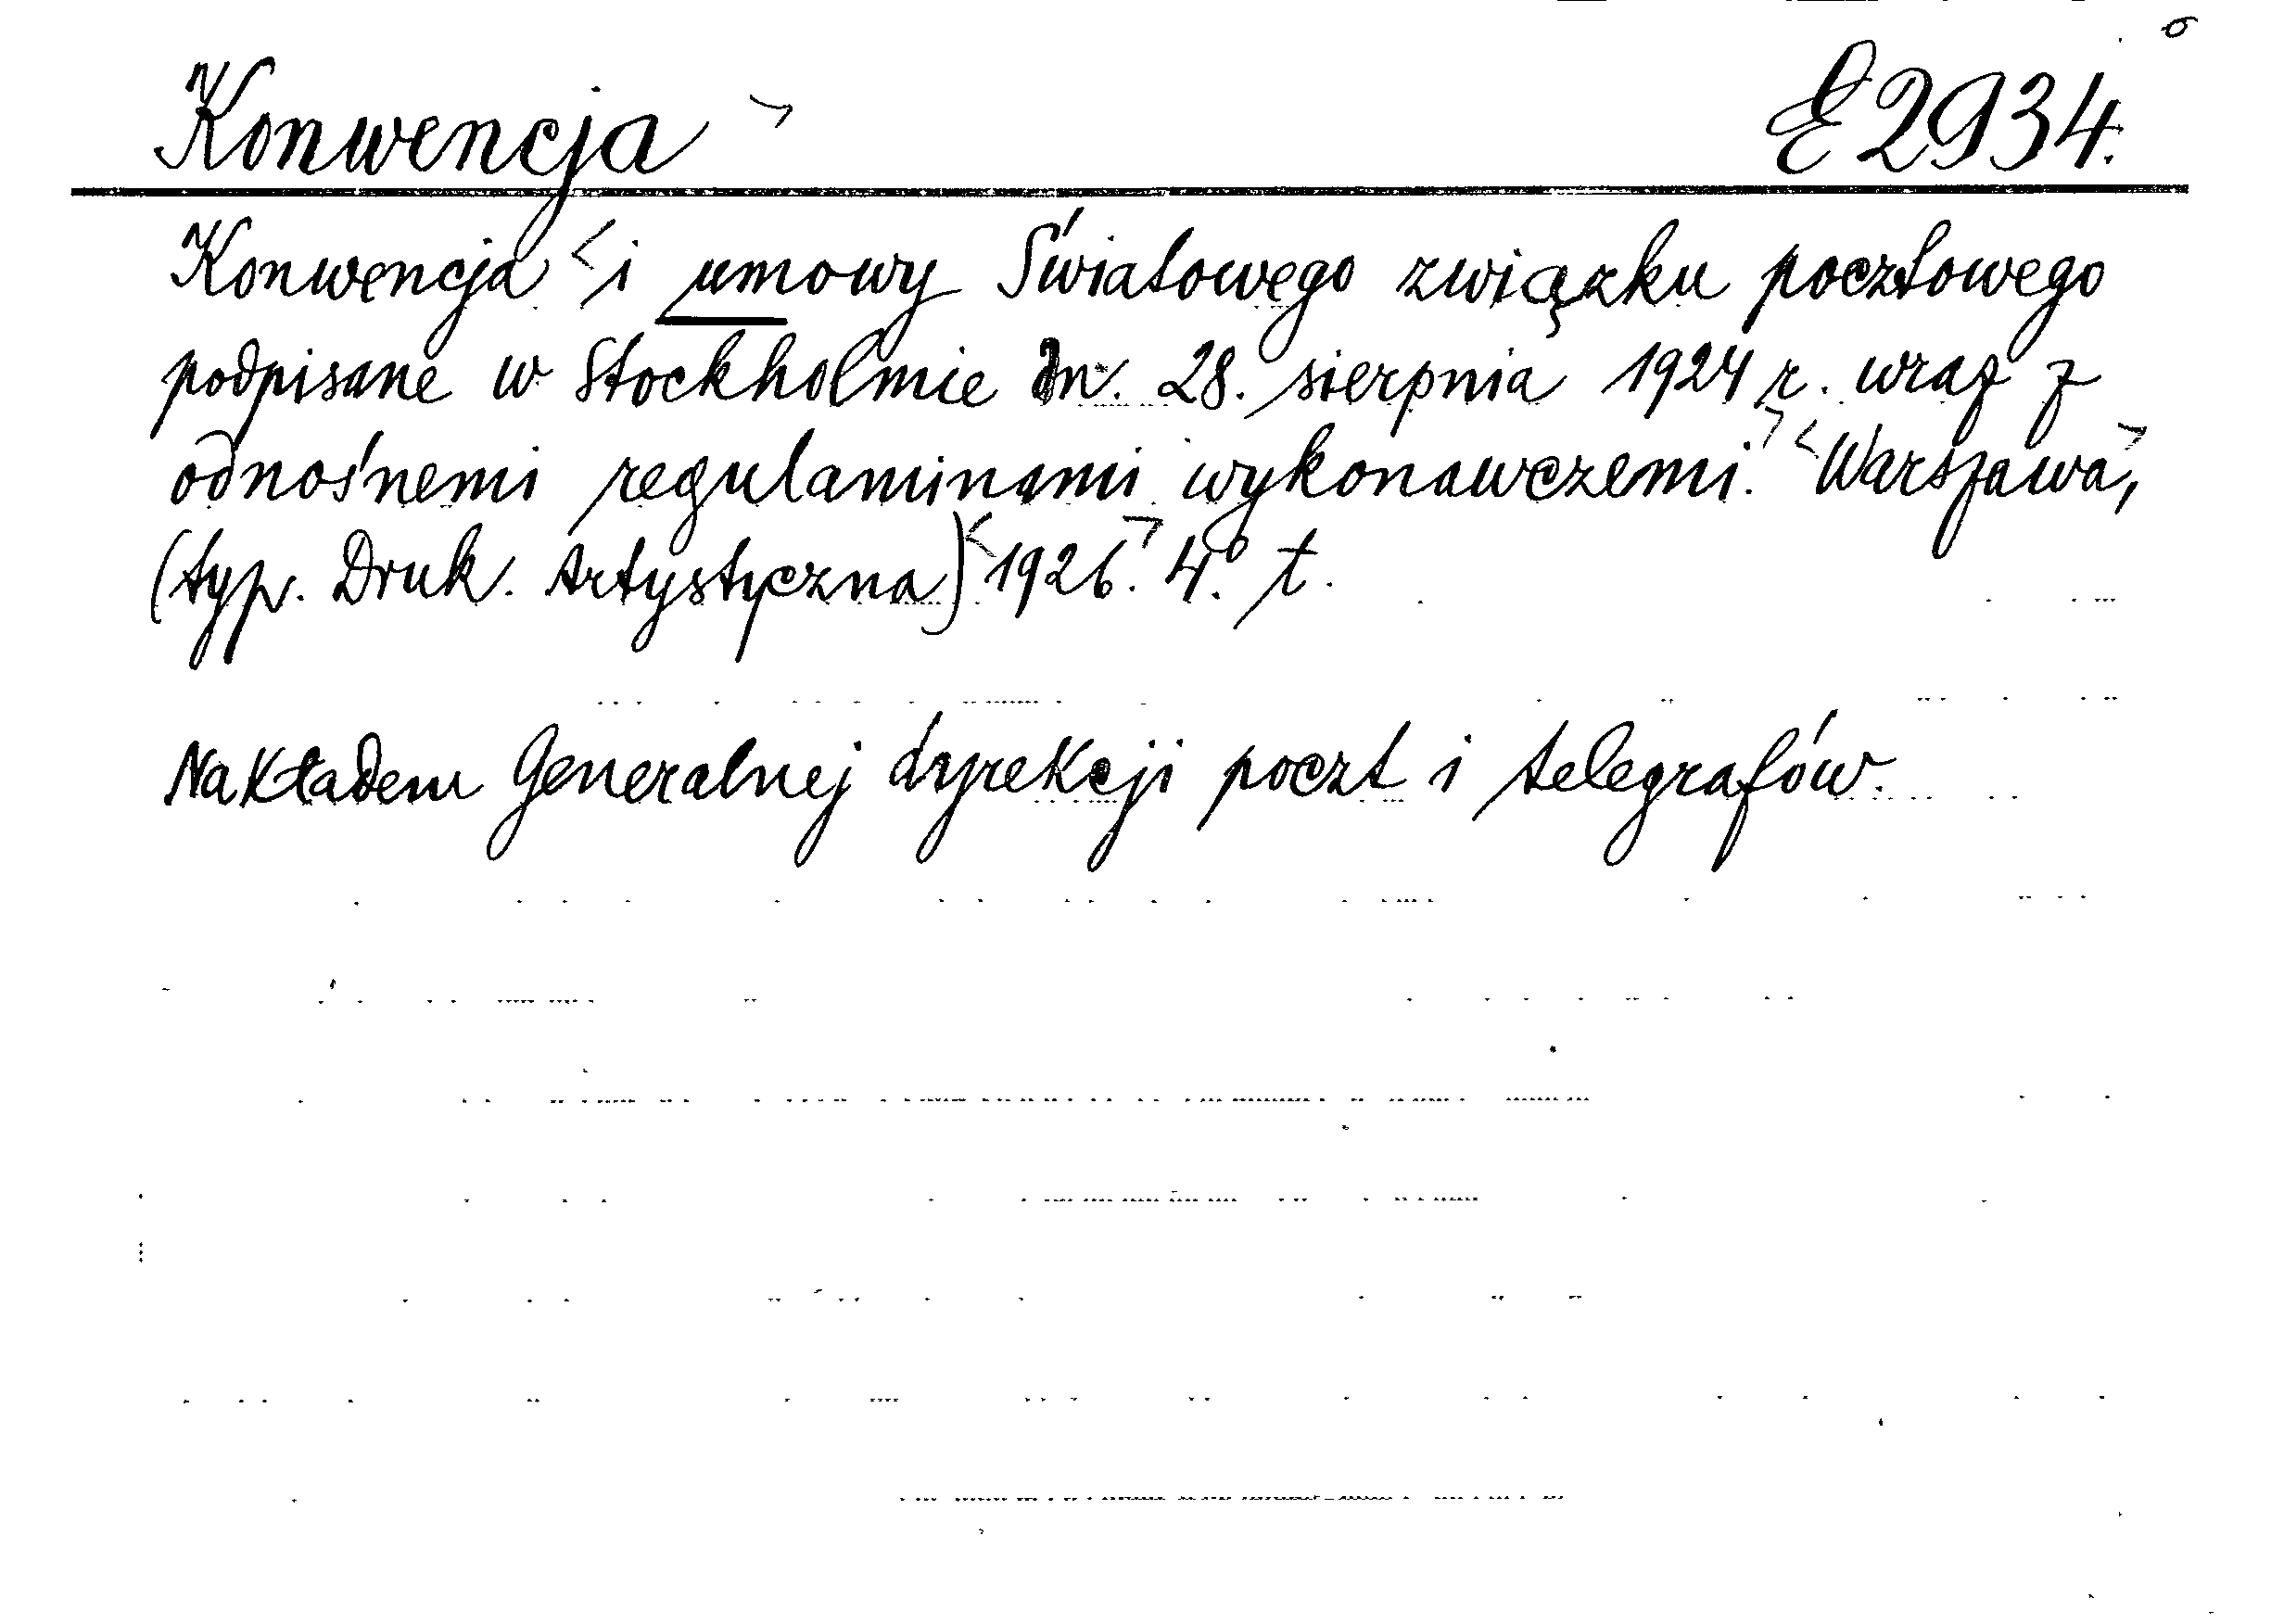 Konwencja E 2934.
Konwencja i umowy Światowego związku pocztowego
podpisane w Stockholmie dn. 28. sierpnia 1924 r. wraz z
odnośnemi regulaminami wykonawczemi. Warszawa,
(typ. Druk. Artystyczna) 1926. 4.° t.
Nakładem Generalnej dyrekcji poczt i telegrafów.